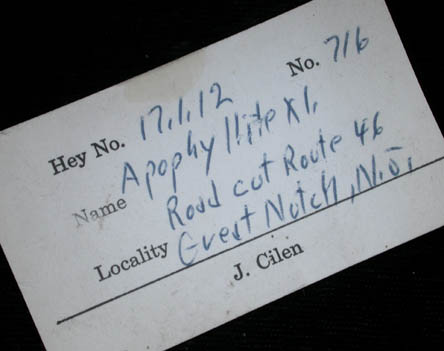 No. 716
Hey No. 17.1.12
Name Apophyllite xl.
Road cut Route 46
Locality Great Notch, N.J.
J. Cilen